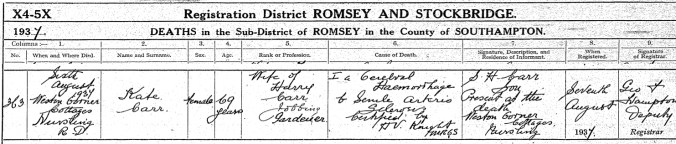 X4-5X
Registration District ROMSEY AND STOCKBRIDGE.
1937. DEATHS in the Sub-District of ROMSEY in the County of SOUTHAMPTON.
Columns:— 1. 2. 3. 4. 5. 6. 7. 8. 9.
No. When and Where Died. Name and Surname. Sex. Age. Rank or Profession. Cause of Death. Signature, Description, and Residence of Informant. When Registered. Signature of Registrar.
263
Sixth
August
1937
Weston Corner
Cottages
Nursling
R.D.
Kate
Carr.
Female
69
years
Wife of
Harry
Carr
Jobbing
Gardener
I a Cerebral
Haemorrhage
b Senile Arterio
Sclerosis
Certified by
H.V. Knight
MRCS
S. H. Carr
Son
Present at the
death
Weston Corner
Cottages.
Nursling
Seventh
August
1937.
Geo F
Hampton
Deputy
Registrar